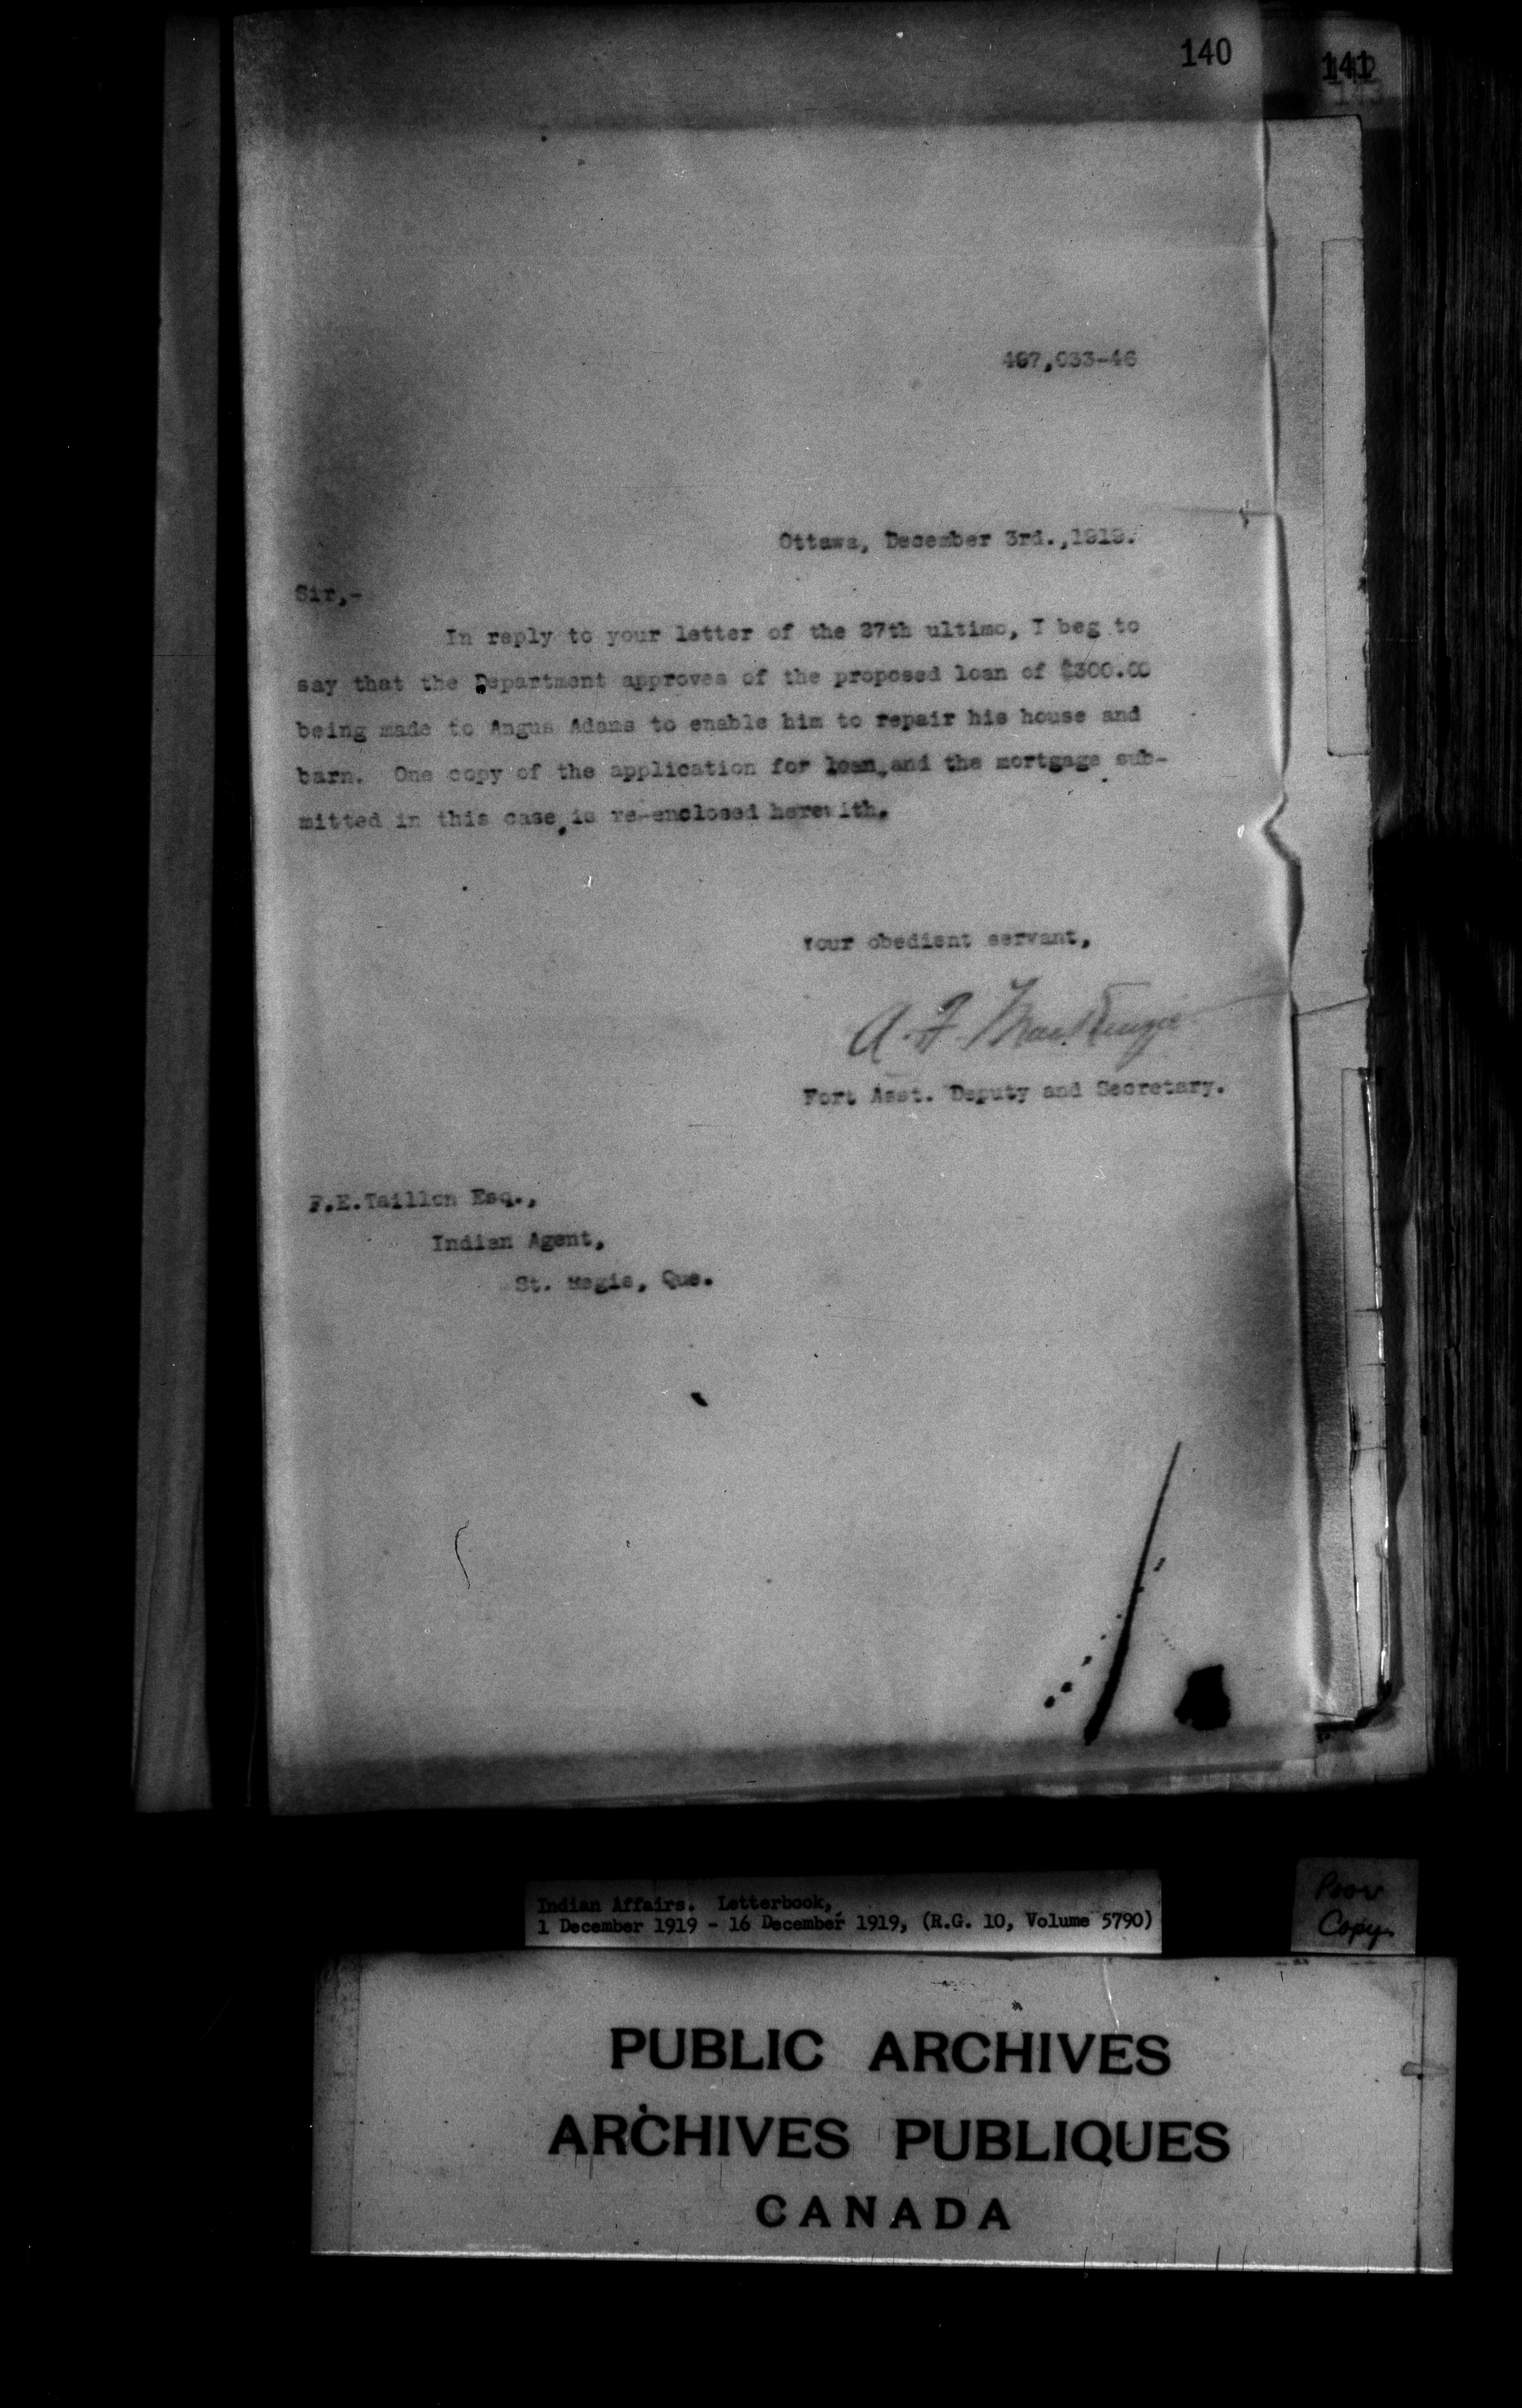 140
141
497,033-46
Ottawa, December 3rd.,1919.
Sir,-
In reply to your letter of the 27th ultimo, I beg to
say that the Department approves of the proposed loan of $300.00
being made to Angus Adams to enable him to repair his house and
barn. One copy of the application for loan, and the mortgage sub-
mitted in this case, is re-enclosed herewith.
Your obedient servant,
A. F. MacKenzie
Fort Asst. Deputy and Secretary.
F.E.Taillon Esq.,
Indian Agent,
St. Regis, Que.
Indian Affairs. Letterbook,
1 December 1919 - 16 December 1919, (R.G. 10, Volume 5790)
Poor
Copy
PUBLIC ARCHIVES
ARCHIVES PUBLIQUES
CANADA